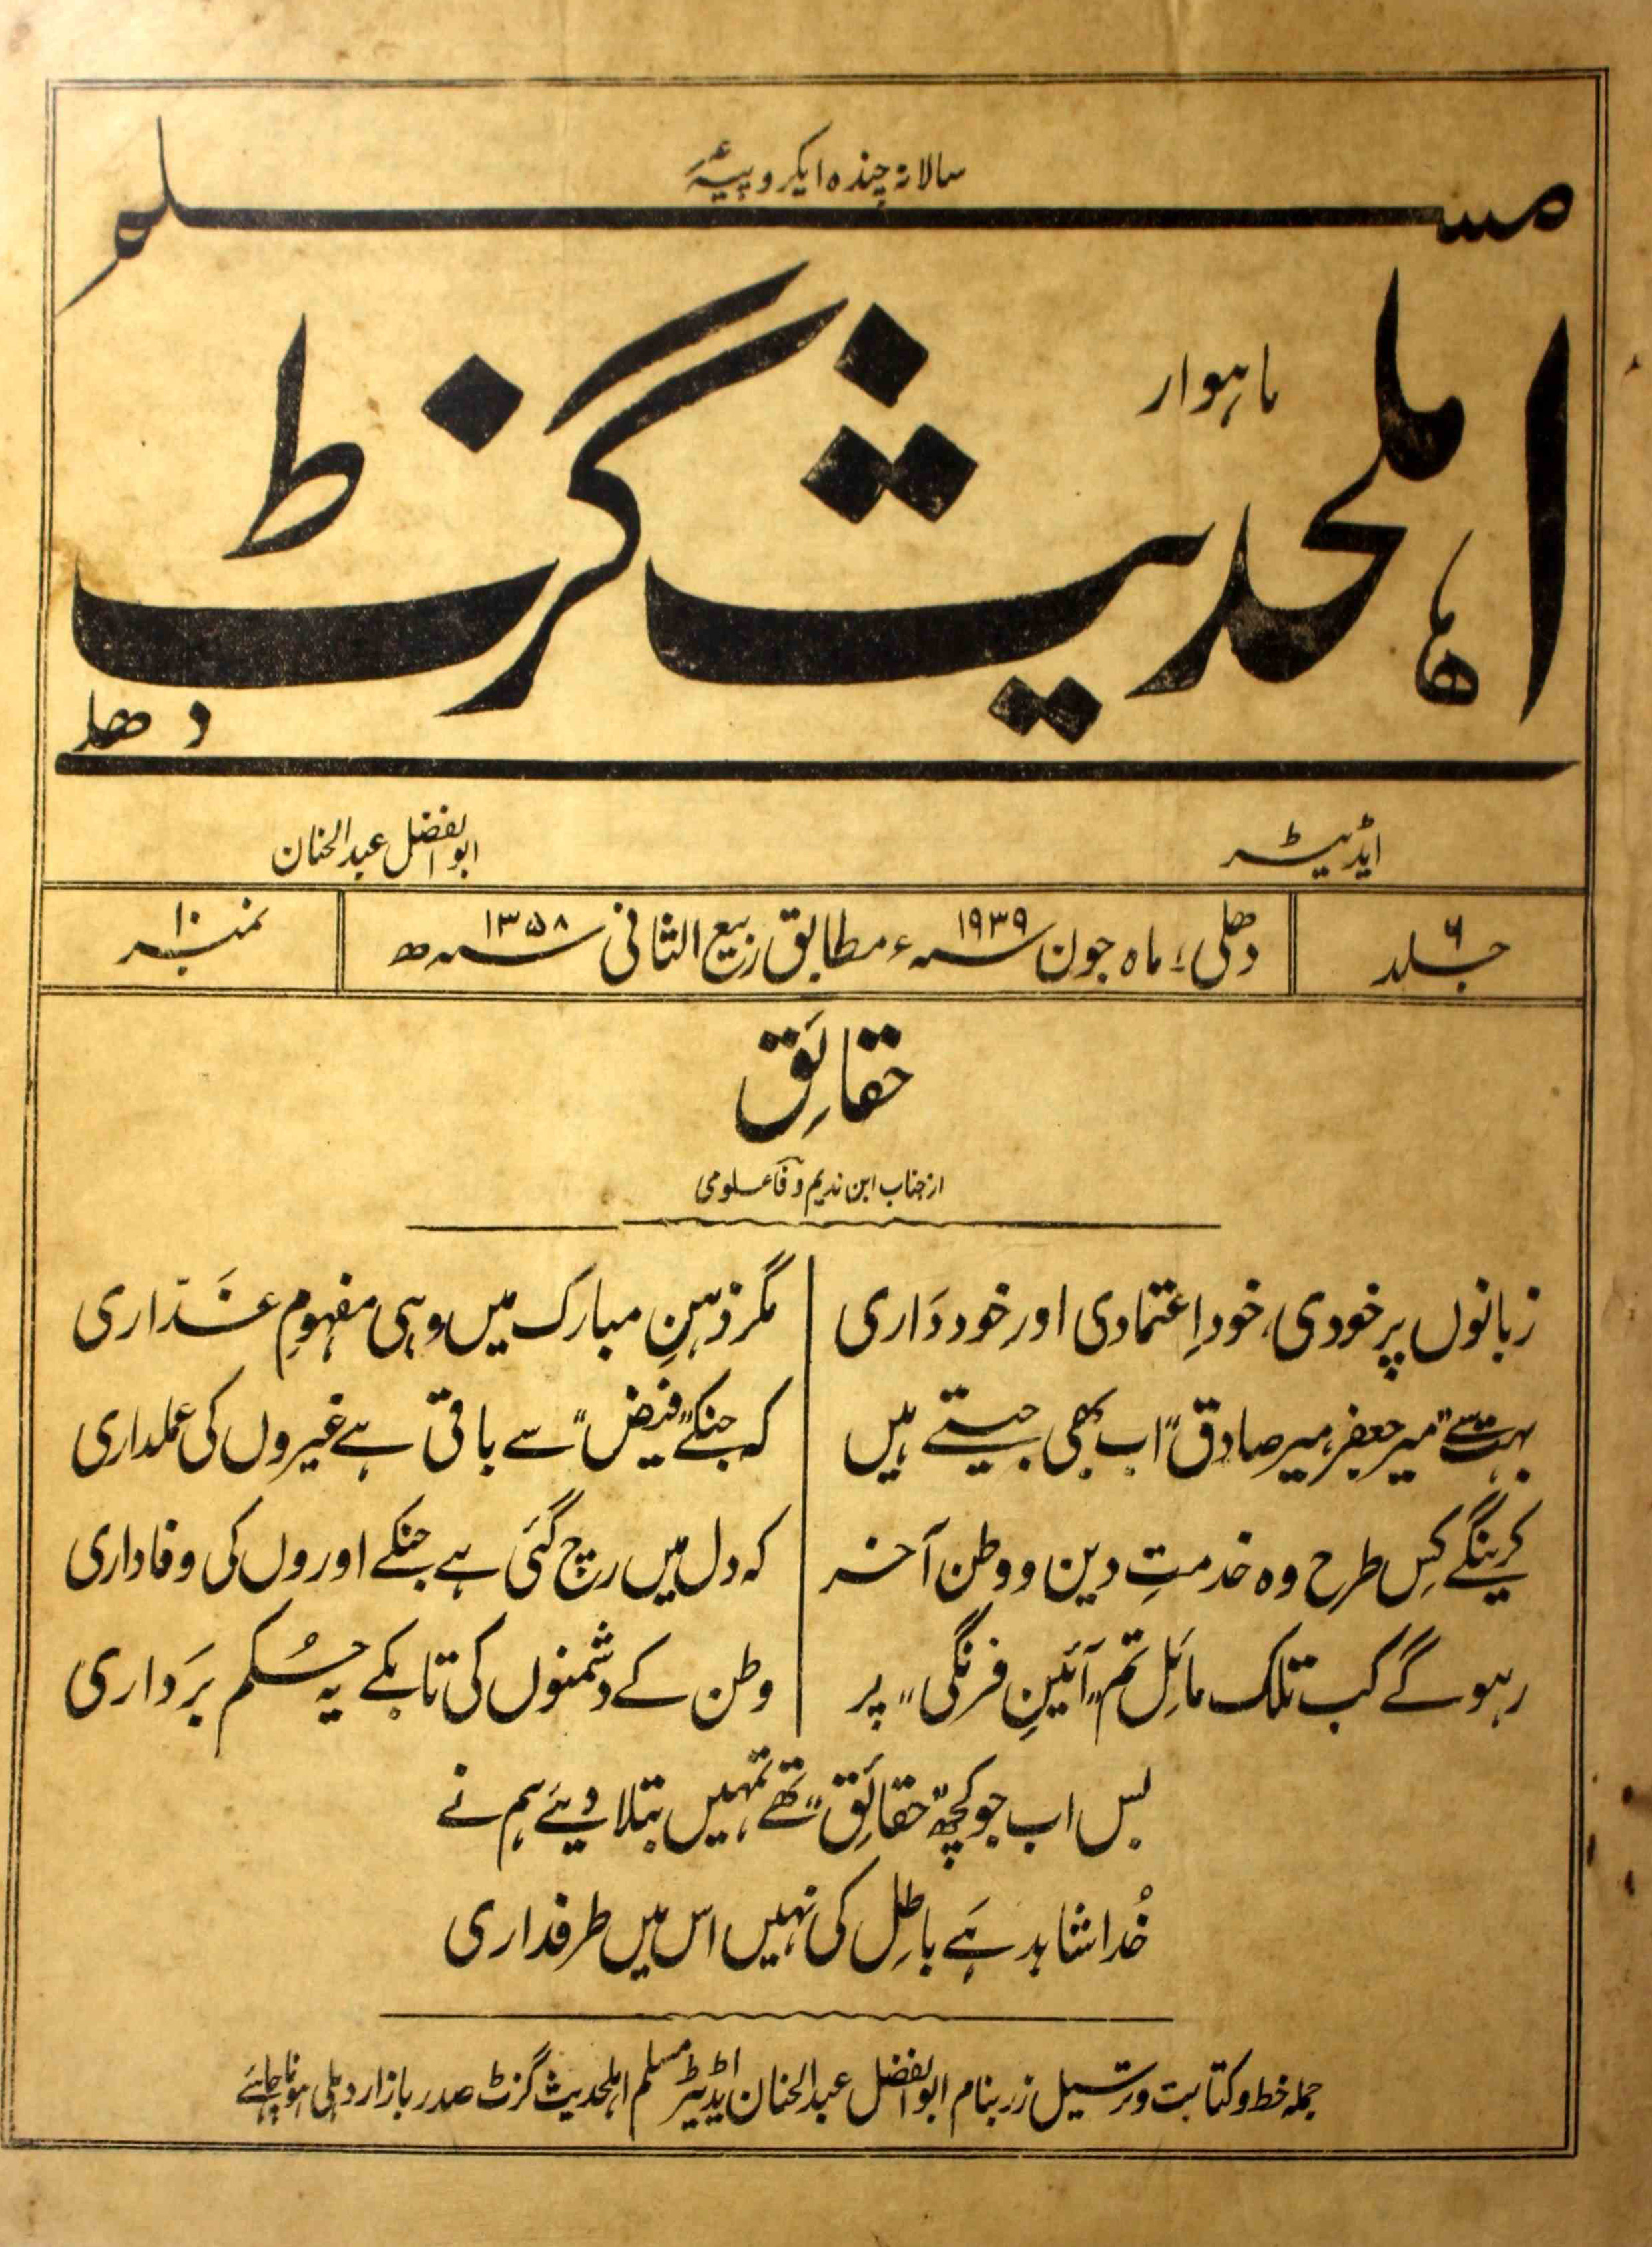 سالانہ چندہ ایکروپیہ
مسلم
ماہوار
اہلحدیث گزٹ
دھلی
ایڈیٹر ابوالفضل عبدالحنان
جلد ۶ دھلی، ماہ جون ۱۹۳۹ء مطابق ربیع الثانی ۱۳۵۸ھ نمبر ۱۰
حقائق
از جناب ابن ندیم وفا علومی
زبانوں پر خودی، خود اعتمادی اور خودداری مگر ذہنِ مبارک میں وہی مفہومِ غدّاری
بہت سے "میر جعفر، میر صادق" اب بھی جیتے ہیں کہ جنکے "فیض" سے باقی ہے غیروں کی عملداری
کرینگے کِس طرح وہ خدمتِ دین و وطن آخر کہ دل میں رچ گئی ہے جنکے اوروں کی وفاداری
رہو گے کب تلک مائل تم "آئینِ فرنگی" پر وطن کے دشمنوں کی تابکے یہ حُکم برداری
بس اب جو کچھ "حقائق" تھے تمہیں بتلا دیئے ہم نے
خُدا شاہد ہے باطِل کی نہیں اس میں طرفداری
جملہ خط و کتابت و ترسیل زر بنام ابوالفضل عبدالحنان ایڈیٹر مسلم اہلحدیث گزٹ صدر بازار دہلی ہونا چاہئے